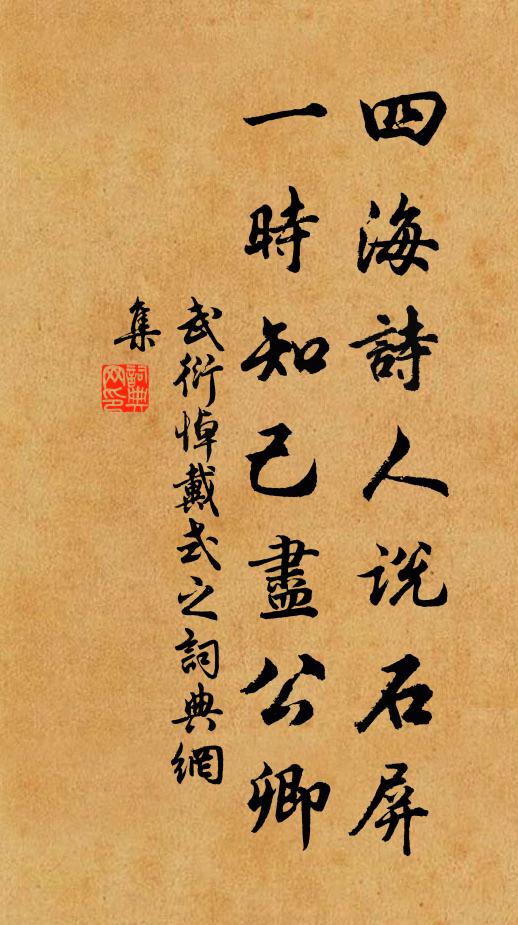 四海詩人說石屏
一時知己盡公卿
武衍悼戴式之詞典網
集
詞典
网印